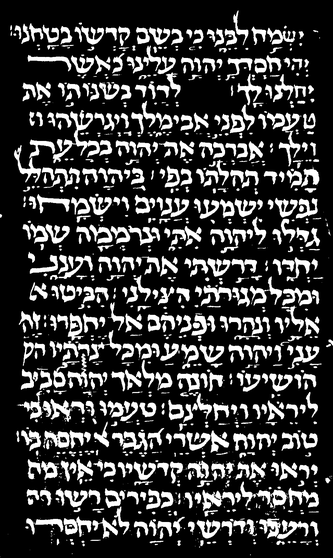 ישמח לבנו כי בשם קדשו בטחנו׃
יהי חסדך יהוה עלינו כאשר
יחלנו לך׃ לדוד בשנותו את
טעמו לפני אבימלך ויגרשהו וי
וילך׃ אברכה את יהוה בכל עת
תמיד תהלתו בפי׃ ביהוה תתהלל
נפשי ישמעו ענוים וישמחו׃
גדלו ליהוה אתי ונרממה שמו
יחדו׃ דרשתי את יהוה וענני
ומכל מגורתי הצילני׃ הביטו א
אליו ונהרו ופניהם אל יחפרו׃ זה
עני ויהוה שמע ומכל צרתיו הו
הושיעו׃ חונה מלאך יהוה סביב
ליראיו ויחלצם׃ טעמו וראו כי
טוב יהוה אשרי הגבר יחסה בו׃
יראו את יהוה קדשיו כי אין מח
מחסר ליראיו׃ כפירים רשו
ורעבו ודרשי יהוה לא יחסרו